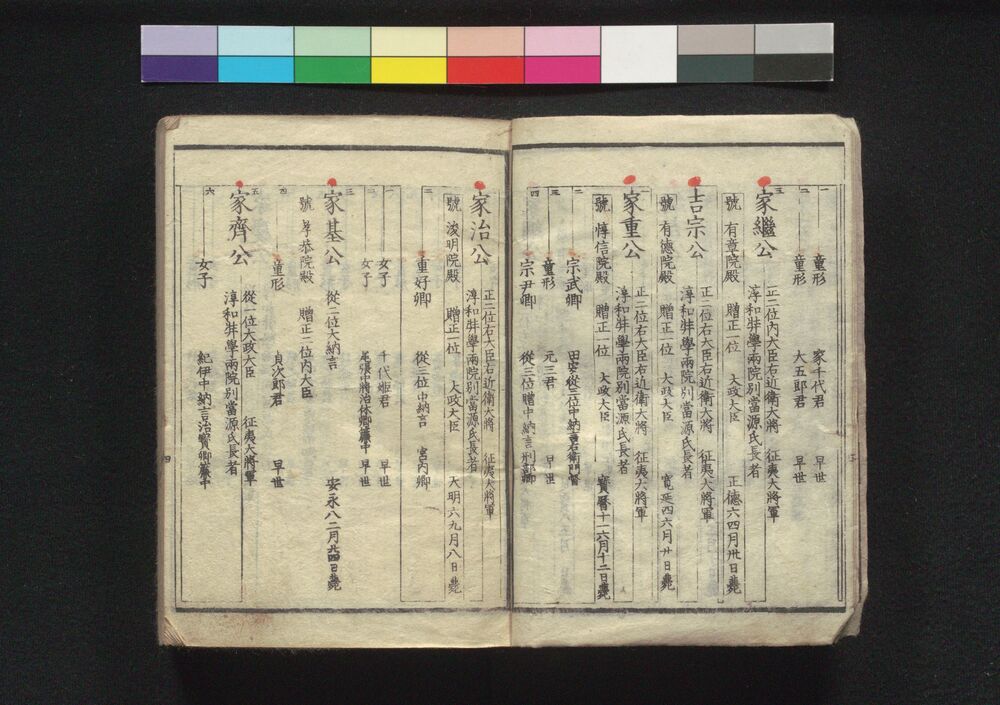 一 童形 家千代君 早世
二 童形 大五郎君 早世
三 家繼公 正二位内大臣右近衛大將 征夷大將軍
淳和弉學兩院別當源氏長者
號 有章院殿 贈正一位 大政大臣 正德六四月卅日薨
吉宗公 正二位右大臣右近衛大將 征夷大將軍
淳和弉學兩院別當源氏長者
號 有德院殿 贈正一位 大政大臣 寛延四六月廿日薨
一 家重公 正二位右大臣右近衛大將 征夷大將軍
淳和弉學兩院別當源氏長者
號 惇信院殿 贈正一位 大政大臣 寶曆十一六月十二日薨
二 宗武卿 田安從三位中納言右衛門督
三 童形 元三君 早世
四 宗尹卿 從三位贈中納言刑部卿
一 家治公 正二位右大臣右近衛大將 征夷大將軍
淳和弉學兩院別當源氏長者
號 浚明院殿 贈正一位 大政大臣 天明六九月八日薨
二 重好卿 從三位中納言 宮内卿
一 女子 千代姫君 早世
二 女子 尾張中將治休卿簾中 早世
三 家基公 從二位大納言
號 孝恭院殿 贈正一位内大臣 安永八二月廿四日薨
四 童形 貞次郎君 早世
五 家齊公 從一位大政大臣 征夷大將軍
淳和弉學兩院別當源氏長者
六 女子 紀伊中納言治寶卿簾中